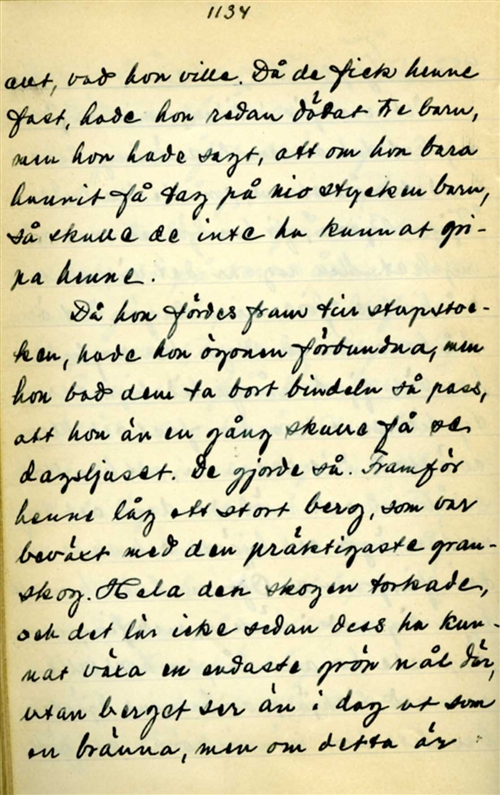 1134
allt, vad hon ville. Då de fick henne
fast, hade hon redan dödat tre barn,
men hon hade sagt, att om hon bara
hunnit få tag på nio stycken barn,
så skulle de inte ha kunnat gri-
pa henne.
Då hon fördes fram till stupstoc-
ken, hade hon ögonen förbundna, men
hon bad dem ta bort bindeln så pass,
att hon än en gång skulle få se
dagsljuset. De gjorde så. Framför
henne låg ett stort berg, som var
beväxt med den präktigaste gran-
skog. Hela den skogen torkade,
och det lär icke sedan dess ha kun-
nat växa en endaste grön nål där,
utan berget ser än i dag ut som
en bränna, men om detta är